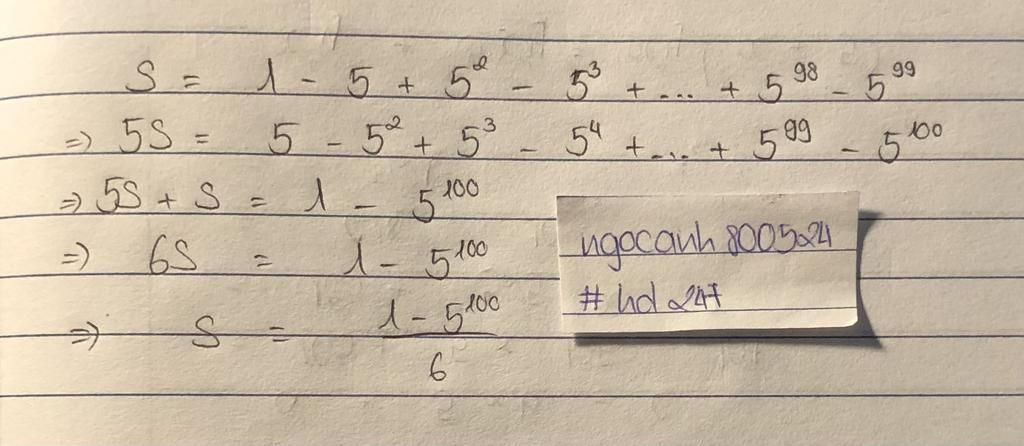 S = 1 - 5 + 5² - 5³ + ... + 5⁹⁸ - 5⁹⁹
=> 5S = 5 - 5² + 5³ - 5⁴ + ... + 5⁹⁹ - 5¹⁰⁰
=> 5S + S = 1 - 5¹⁰⁰
=> 6S = 1 - 5¹⁰⁰
=> S = (1 - 5¹⁰⁰)/6
ngocanh800524
#hd247